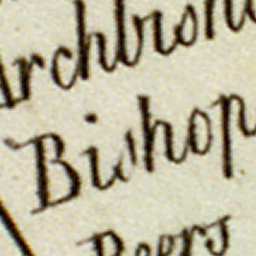 Archbisho
Bishop
Peers